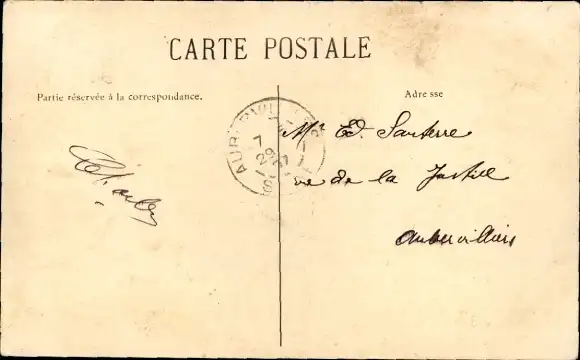 CARTE POSTALE
Partie réservée à la correspondance.
Adresse
Mr Ed. Santerre
rue de la Justice
Aubervilliers